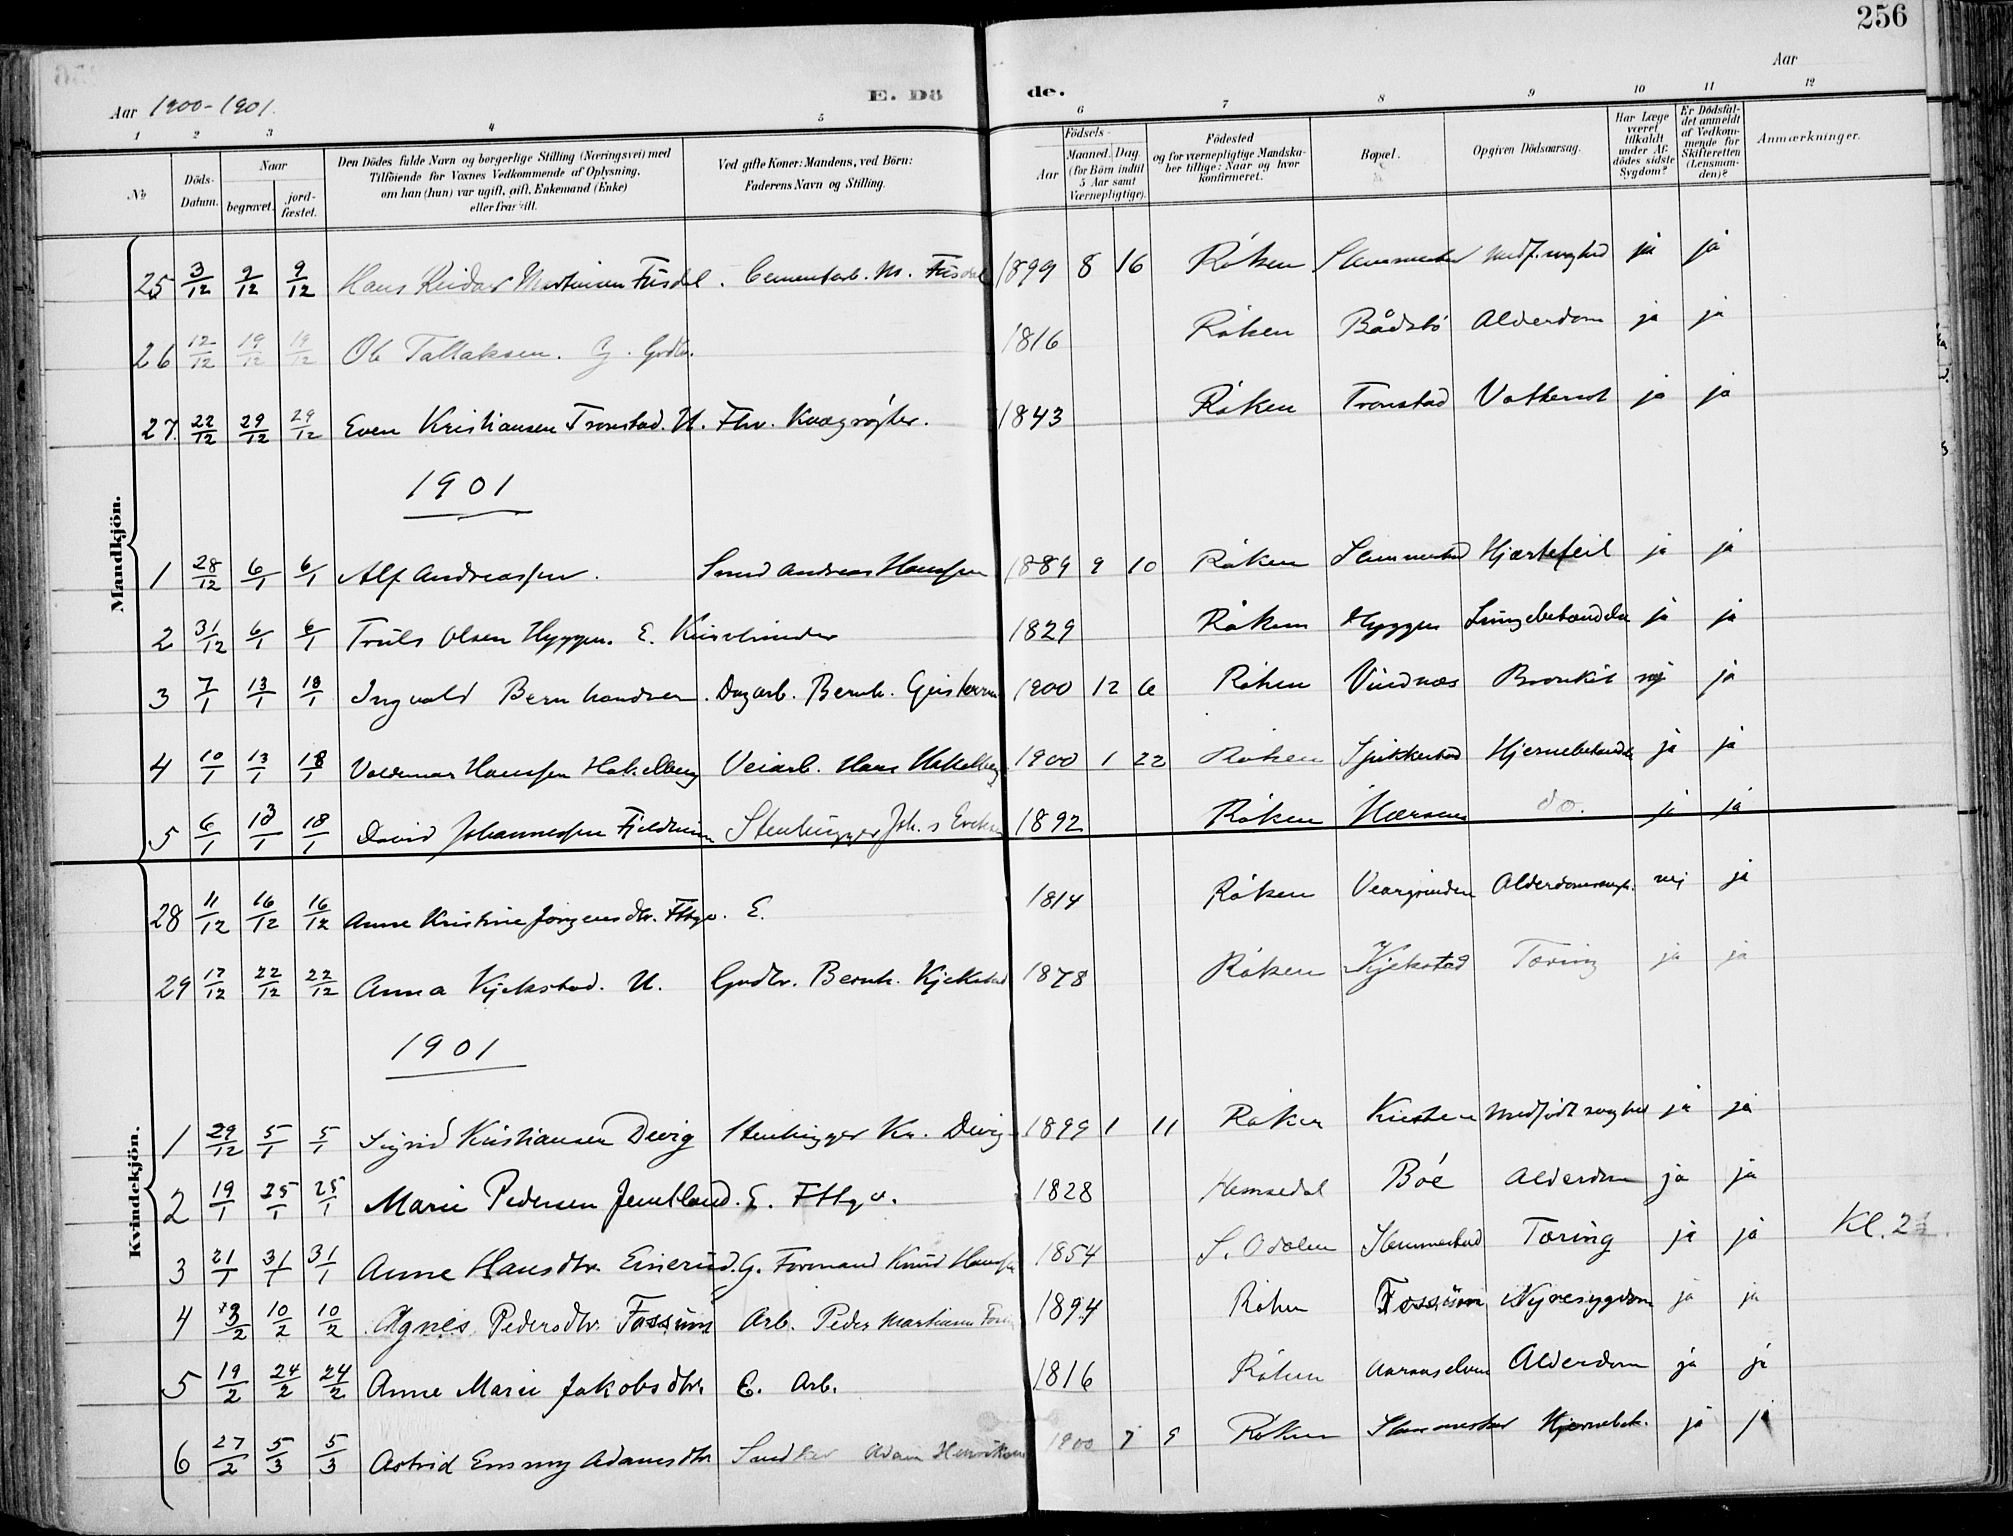 256
Aar 1900-1901.
E. Dö de.
Aar
1 2 3 4 5 6 7 8 9 10 11 12
No
Döds-Datum.
Naar begravet. jord-fæstet.
Den Dödes fulde Navn og borgerlige Stilling (Næringsvei) med Tilföiende for Voxnes Vedkommende af Oplysning, om han (hun) var ugift, gift, Enkemand (Enke) eller fraskilt.
Ved gifte Koner: Mandens, ved Börn: Faderens Navn og Stilling.
Födsels-
Aar
Maaned. Dag. (for Börn indtil 5 Aar samt Værnepligtige).
Födested og for værnepligtige Mandskaber tillige: Naar og hvor konfirmeret.
Bopæl.
Opgiven Dödsaarsag.
Har Læge været tilkaldt under Afdödes sidste Sygdom?
Er Dödsfaldet anmeldt af Vedkommende for Skifteretten (Lensmanden)?
Anmærkninger.
Mandkjön.
25 3/12 9/12 9/12 Hans Reidar Martinsen Fusdal. Cementarb. M. Fusdal 1899 8 16 Röken Slemmestad medf. svaghed ja ja
26 12/12 19/12 19/12 Ole Tallaksen. G. Grdbr. 1816 Röken Bådstö Alderdom ja ja
27 22/12 29/12 29/12 Even Kristiansen Tronstad. U. Fhv. Kvægrögter. 1843 Röken Tronstad Vattersot ja ja
1901
1 28/12 6/1 6/1 Alf Andreassen. Smed Andreas Hanssen 1889 9 10 Röken Slemmestad Hjærtefeil ja ja
2 31/12 6/1 6/1 Truls Olsen Hyggen. E. 1829 Röken Hyggen Lungebetændelse ja ja
3 7/1 13/1 18/1 Ingvald Bernhardsen. Dagarb. Bernh. 1900 12 6 Röken Vindnæs Bronkit nej ja
4 10/1 13/1 18/1 Valdemar Hanssen Hakelberg Veiarb. Hans Hakelberg 1900 1 22 Röken Spikkestad Hjernebetændelse ja ja
5 6/1 13/1 18/1 David Johannessen Stenhugger Joh.s 1892 Röken do. ja ja
Kvindekjön.
28 11/12 16/12 16/12 Anne Kristine Jörgensdtr. Fttgv. E. 1814 Röken Alderdomssvagh. nej ja
29 17/12 22/12 22/12 Anna Kjekstad. U. Grdbr. Bernh. Kjekstad 1878 Röken Kjekstad Tæring ja ja
1901
1 29/12 5/1 5/1 Sigrid Kristiansen Stenhugger Kr. 1899 1 11 Röken Medfödt svaghed ja ja
2 19/1 25/1 25/1 Marie Pedersen Jemtland. E. Fttgv. 1828 Hemsedal Böe Alderdom ja ja
3 21/1 31/1 31/1 Anne Hansdtr. Einerud. G. Formand Knud Hanssen 1854 S. Odalen Slemmestad Tæring ja ja Kl. 2
4 3/2 10/2 10/2 Agnes Pedersdtr. Fossum Arb. Peder Martinsen 1894 Röken Fossum Nyresygdom ja ja
5 19/2 24/2 24/2 Anne Marie Jakobsdtr. E. Arb. 1816 Röken Aaroselven Alderdom ja ja
6 27/2 5/3 5/3 Astrid Emmy Adamsdtr Snedker Adam Henriksen 1900 7 9 Röken Slemmestad Hjernebet. ja ja